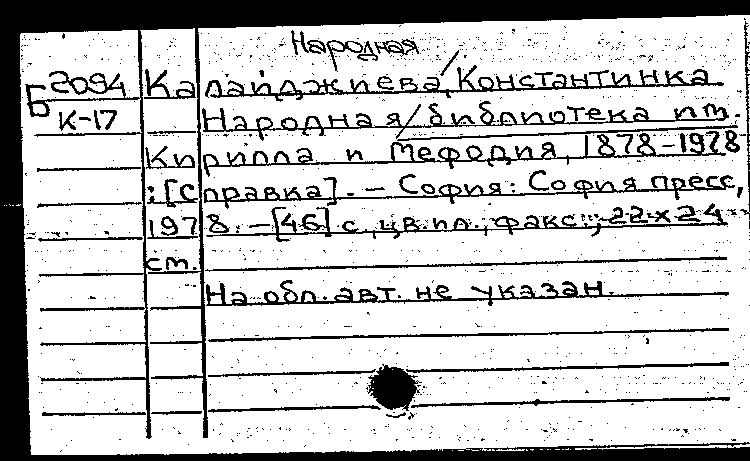 Народная
Б 2094 Калайджиева, Константинка
К-17 Народная / библиотека им.
Кирилла и Мефодия, 1878-1978
: [Справка]. - София: София пресс,
1978. - [46] с., цв.ил., факс.; 22 x 24
см.
На обл. авт. не указан.